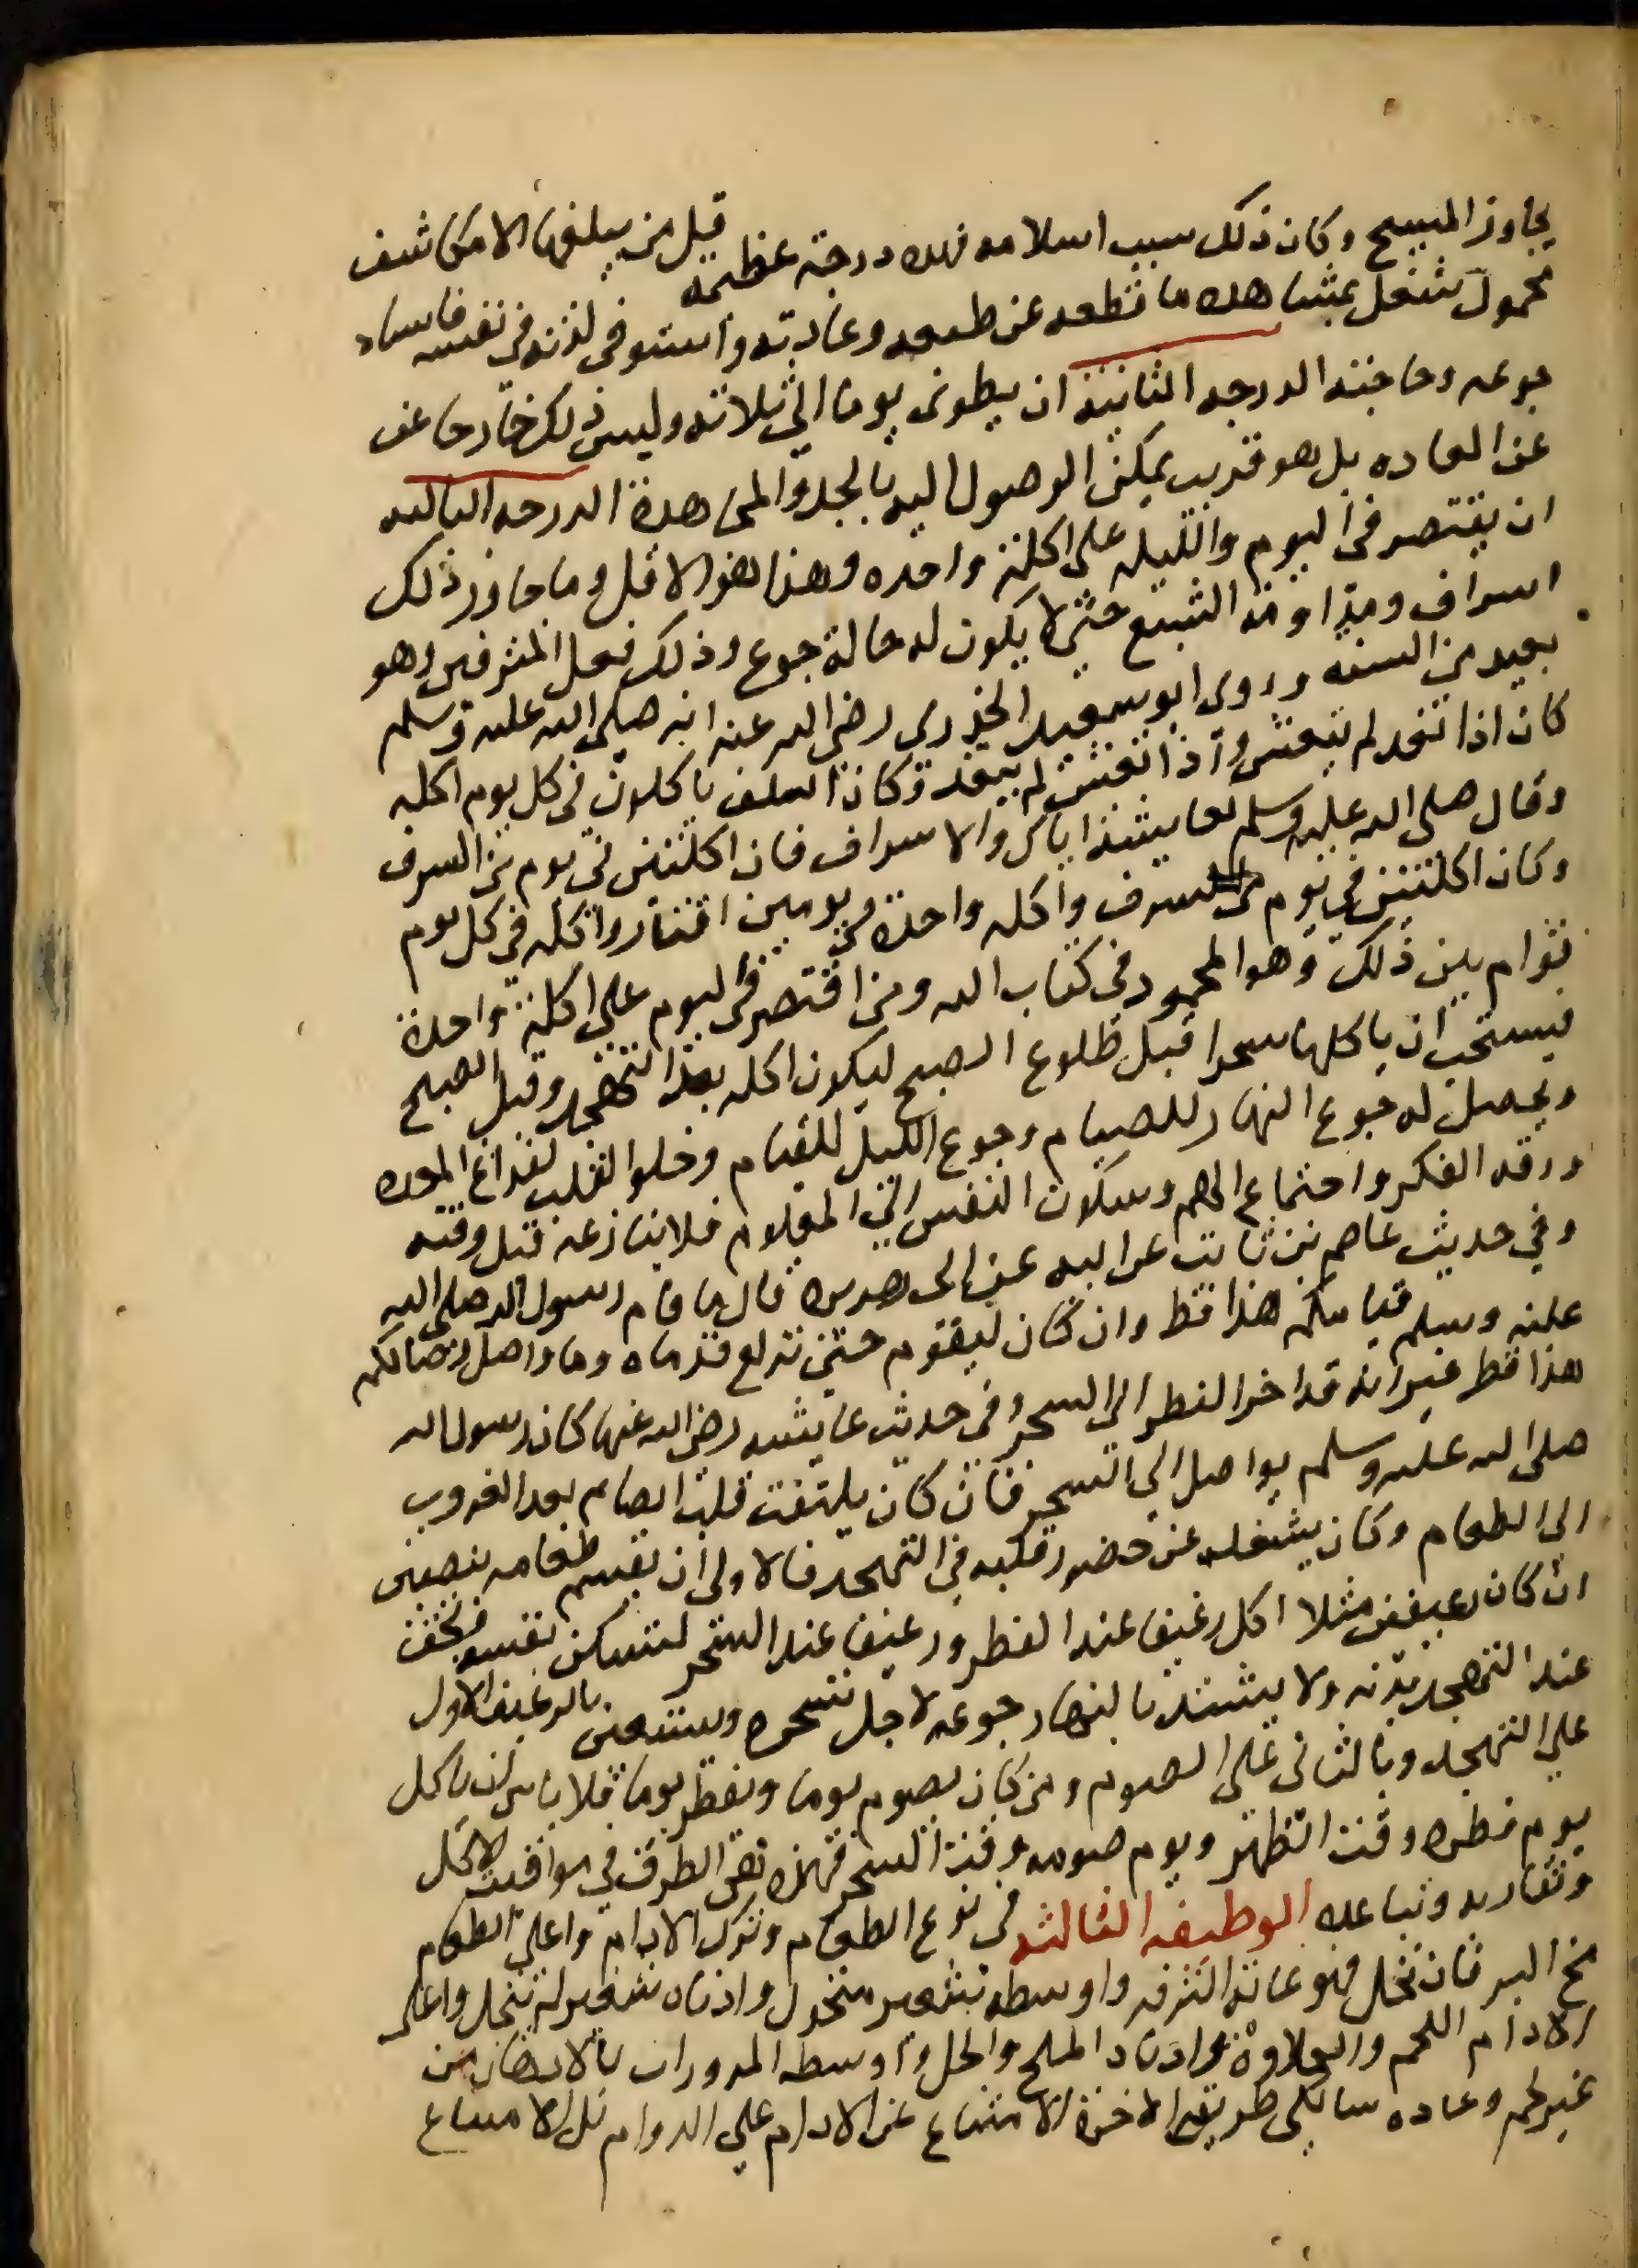 يجاوز المسيح وكان ذلك سبب اسلامه فهده درجة عظيمه قيل من يبلغها الا مكاشف
محمول شغل بمشاهده ما قطعه عن طبعه وعادته واستوفى لذته في نفسه فانساه
جوعه وحاجته الدرجه الثانية ان يطوى يوما الى ثلاثه وليس ذلك خارجا عن
عن العاده بل هو قريب يمكن الوصول اليه بالجد والمجاهدة الدرجه الثالثه
ان يقتصر في اليوم والليله على اكلة واحده وهذا هو الاقل وما جاوز ذلك
اسراف ومداومة الشبع حتى لا يكون له حالة جوع وذلك فعل المترفين وهو
بعيد من السنه وروى ابو سعيد الخدري رضي الله عنه انه صلى الله عليه وسلم
كان اذا تغد لم يتعش واذا تعش لم يتغد وكان السلف ياكلون في كل يوم اكله
وقال صلى الله عليه وسلم لعايشة اياك والاسراف فان اكلتين في يوم من السرف
وكان اكلتين في يوم من السرف واكله واحدة في يومين اقتار واكله في كل يوم
قوام بين ذلك وهو المحمود في كتاب الله ومن اقتصر في اليوم على اكلة واحدة
فيستحب ان ياكلها سحرا قبل طلوع الصبح ليكون اكله بعد التهجد وقبل الصبح
ويحصل له جوع النهار للصيام وجوع الليل للقيام وخلو القلب لفراغ المعده
ورقه الفكر واجتماع الهم وسكون النفس الى المعلوم فلا ينازعه قبل وقته
وفي حديث عاصم بن ثابت عن ابيه عن ابى هريره قال ما قام رسول الله صلى الله
عليه وسلم قيامكم هذا قط وان كان ليقوم حتى تزلع قدماه وما واصل وصالكم
هذا قط غير انه قد اخر الفطر الى السحر وفي حديث عايشه رضي الله عنها كان رسول الله
صلى الله عليه وسلم يواصل الى السحر فان كان يلتفت قلب الصايم بعد الغروب
الى الطعام وكان يشغله عن حضور قلبه في التهجد فالاولى ان يقسم طعامه بنصفين
ان كان رغيفين مثلا اكل رغيفا عند الفطر ورغيفا عند السحر لتسكن نفسه ويخف
عند التهجد بدنه ولا يشتد بالنهار جوعه لاجل تسحره ويستعين بالرغيف الاول
على التهجد وبالثاني على الصوم ومن كان يصوم يوما ويفطر يوما فلا باس ان ياكل
يوم فطره وقت الظهر ويوم صومه وقت السحر فهذه هى الطرق في مواقيت الاكل
وتقاربه وتباعده الوظيفه الثالثه في نوع الطعام وترك الادام واعلى الطعام
مخ البر فان نخل فهو غاية الترفه واوسطه شعير منخول وادناه شعير لم ينخل واعلى
الادام اللحم والحلاوة وادناه الملح والخل واوسطه المزورات بالادهان من
غير لحم وعاده سالكى طريق الاخرة الامتناع عن الادام على الدوام بل الامتناع